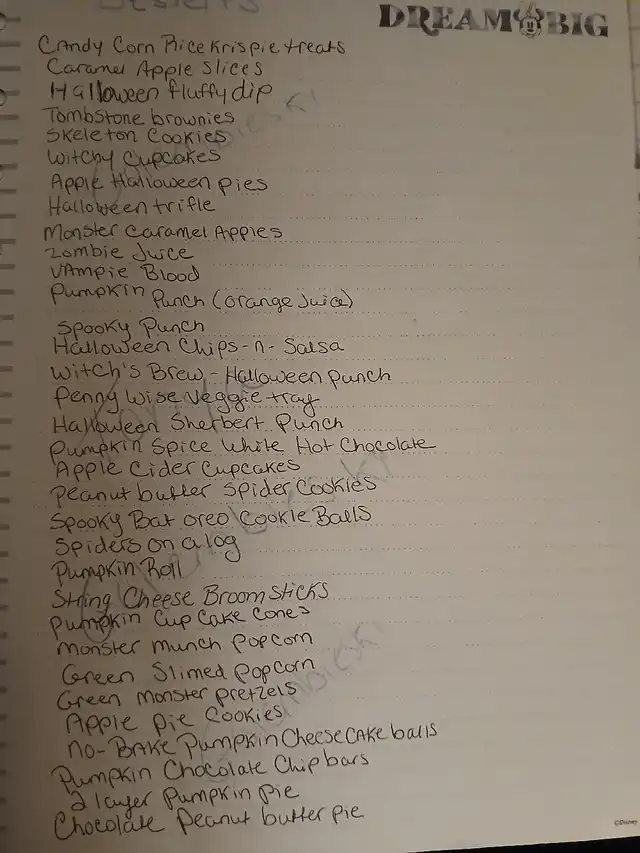 Desserts
DREAM BIG
Candy Corn Rice Krispie treats
Caramel Apple slices
Halloween fluffy dip
Tombstone brownies
Skeleton Cookies
Witchy Cupcakes
Apple Halloween pies
Halloween trifle
Monster Caramel Apples
Zombie Juice
VAmpie Blood
Pumpkin Punch (orange Juice)
Spooky Punch
Halloween Chips-n-Salsa
Witch's Brew - Halloween punch
Penny Wise Veggie tray
Halloween Sherbert Punch
Pumpkin Spice White Hot Chocolate
Apple Cider Cupcakes
Peanut butter Spider Cookies
Spooky Bat oreo Cookie Balls
Spiders on a log
Pumpkin Roll
String Cheese Broom Sticks
Pumpkin Cup Cake Cones
Monster Munch Popcorn
Green Slimed Popcorn
Green Monster pretzels
Apple pie Cookies
No-BAKE Pumpkin Cheese CAKE balls
Pumpkin Chocolate Chip bars
2 layer Pumpkin pie
Chocolate Peanut butter pie
©Disney